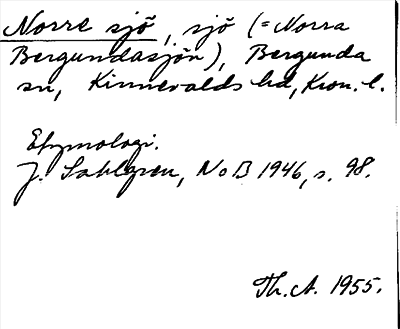 Norre sjö, sjö (=Norra
Bergundasjön), Bergunda
sn, Kinnevalds hd, Kron. l.
Etymologi.
J. Sahlgren, NoB 1946, s. 98.
Th. A. 1955.